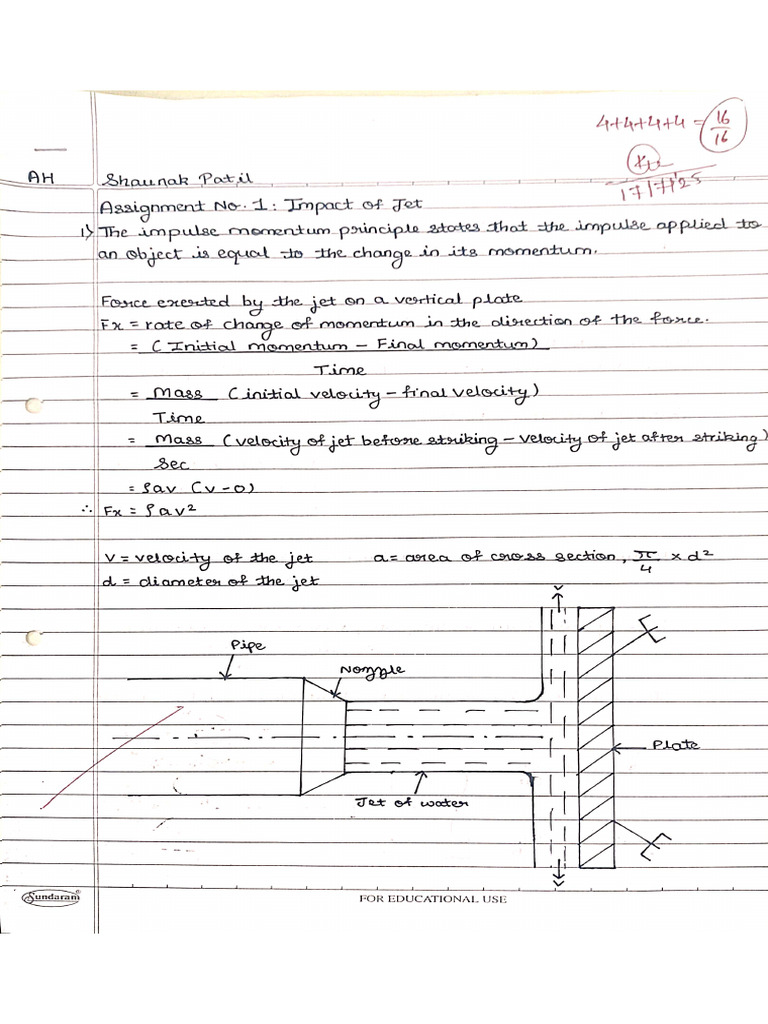 4+4+4+4 = 16/16
17/7/25
AH Shaunak Patil
Assignment No. 1: Impact of Jet
1) The impulse momentum principle states that the impulse applied to
an object is equal to the change in its momentum.
Force exerted by the jet on a vertical plate
Fx = rate of change of momentum in the direction of the force.
= (Initial momentum - Final momentum)
Time
= Mass (initial velocity - final velocity)
Time
= Mass (velocity of jet before striking - velocity of jet after striking)
Sec
= ρav (v-0)
∴ Fx = ρav²
V = velocity of the jet a = area of cross section, π/4 × d²
d = diameter of the jet
Pipe
Nozzle
Plate
Jet of water
Sundaram®
FOR EDUCATIONAL USE